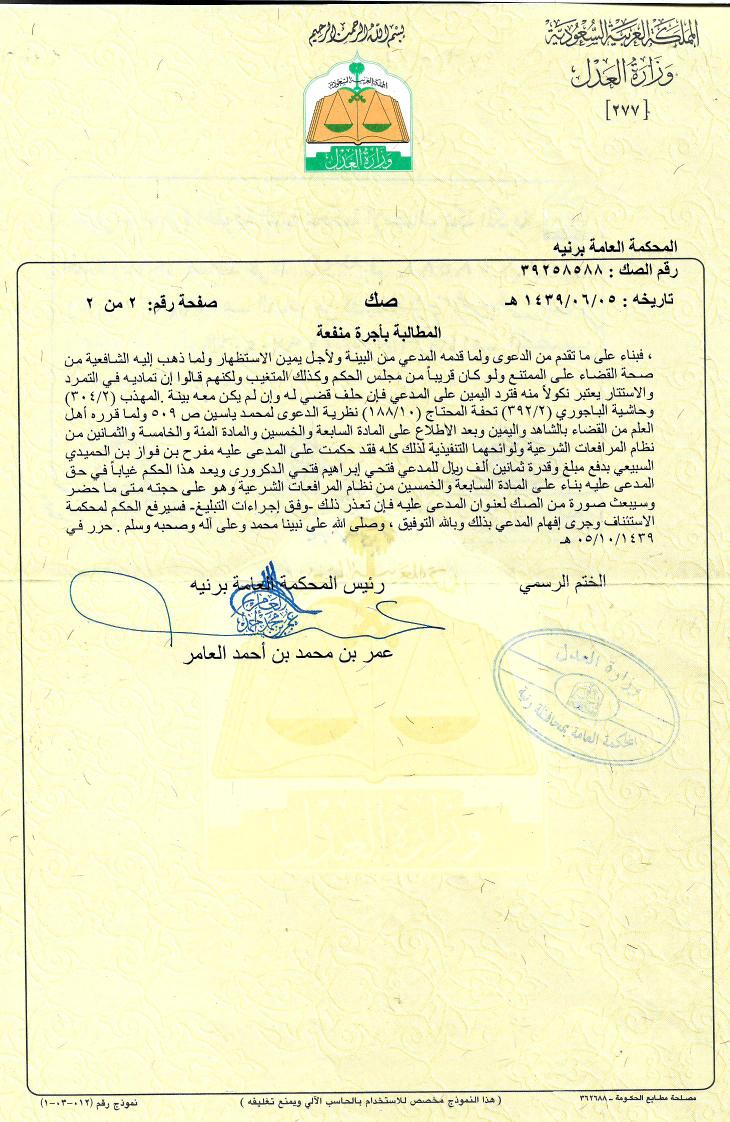 بسم الله الرحمن الرحيم
المملكة العربية السعودية
وزارة العدل
[٢٧٧]
المملكة العربية السعودية
وزارة العدل
المحكمة العامة برنيه
رقم الصك : ٣٩٢٥٨٥٨٨
تاريخه : ١٤٣٩/٠٦/٠٥ هـ
صك
صفحة رقم: ٢ من ٢
المطالبة بأجرة منفعة
، فبناء على ما تقدم من الدعوى ولما قدمه المدعي من البينة ولأجل يمين الاستظهار ولما ذهب إليه الشافعية من
صحة القضاء على الممتنع ولو كان قريباً من مجلس الحكم وكذلك المتغيب ولكنهم قالوا إن تماديه في التمرد
والاستتار يعتبر نكولاً منه فترد اليمين على المدعي فإن حلف قضي له وإن لم يكن معه بينة .المهذب (٣٠٤/٢)
وحاشية الباجوري (٣٩٢/٢) تحفة المحتاج (١٨٨/١٠) نظرية الدعوى لمحمد ياسين ص ٥٠٩ ولما قرره أهل
العلم من القضاء بالشاهد واليمين وبعد الاطلاع على المادة السابعة والخمسين والمادة المئة والخامسة والثمانين من
نظام المرافعات الشرعية ولوائحهما التنفيذية لذلك كله فقد حكمت على المدعى عليه مفرح بن فواز بن الحميدي
السبيعي بدفع مبلغ وقدرة ثمانين ألف ريال للمدعي فتحي إبراهيم فتحي الدكروري ويعد هذا الحكم غياباً في حق
المدعى عليه بناء على المادة السابعة والخمسين من نظام المرافعات الشرعية وهو على حجته متى ما حضر
وسيبعث صورة من الصك لعنوان المدعى عليه فإن تعذر ذلك -وفق إجراءات التبليغ- فسيرفع الحكم لمحكمة
الاستئناف وجرى إفهام المدعي بذلك وبالله التوفيق ، وصلى الله على نبينا محمد وعلى آله وصحبه وسلم . حرر في
٠٥/١٠/١٤٣٩ هـ
الختم الرسمي
رئيس المحكمة العامة برنيه
عمر بن محمد بن أحمد العامر
وزارة العدل
المحكمة العامة بمحافظة رنية
وزارة العدل
مصلحة مطابع الحكومة – ٣٦٢٦٨٨
( هذا النموذج مخصص للاستخدام بالحاسب الآلي ويمنع تغليفه )
نموذج رقم (٠١٢-٠٣-١)